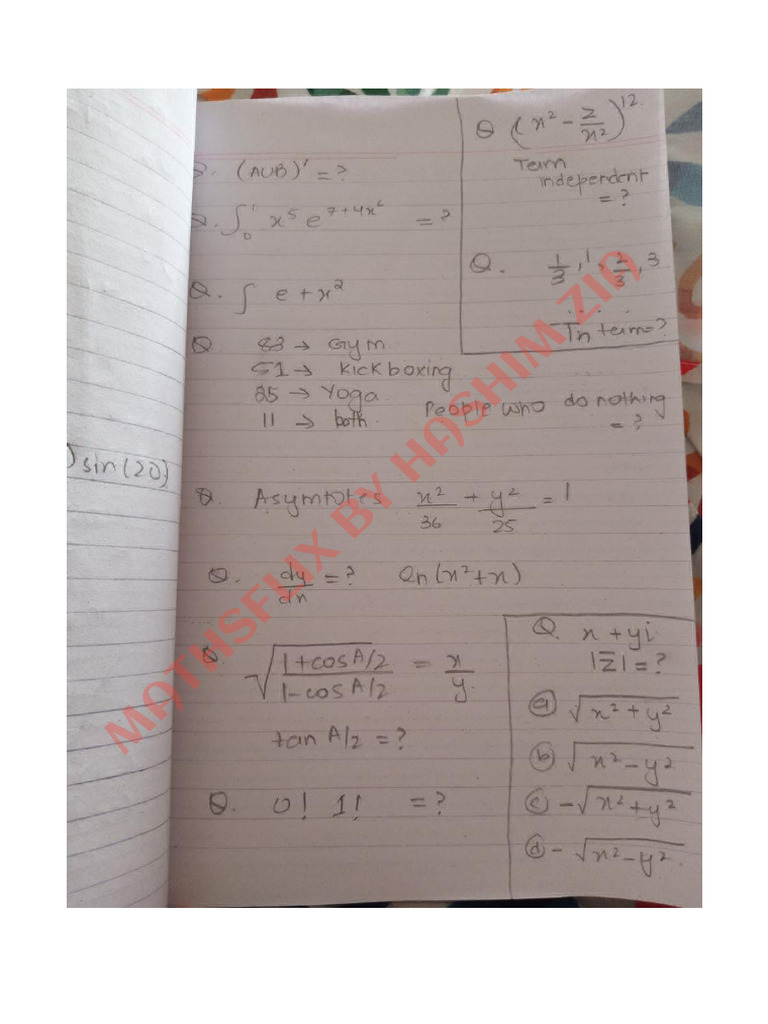 ) sin(20)
Q. (AUB)' = ?
Q. ∫₀¹ x⁵ e⁷⁺⁴ˣ⁶ = ?
Q. ∫ e + x²
Q 83 → Gym
51 → kickboxing
25 → Yoga
11 → both.
People who do nothing
= ?
Q. Asymtotes x²/36 + y²/25 = 1
Q. dy/dx = ? ln(x²+x)
Q √(1+cosA/2 / 1-cosA/2) = x/y
tan A/2 = ?
Q. 0! 1! = ?
Q (x² - 2/x²)¹²
Term
independent
= ?
Q. 1/3, 1, 2/3, 3
. . . .
Tn term = ?
Q. x + yi
|z̅| = ?
ⓐ √x² + y²
ⓑ √x² - y²
ⓒ -√x² + y²
ⓓ -√x² - y²
MATHSFLIX BY HASHIM ZIA